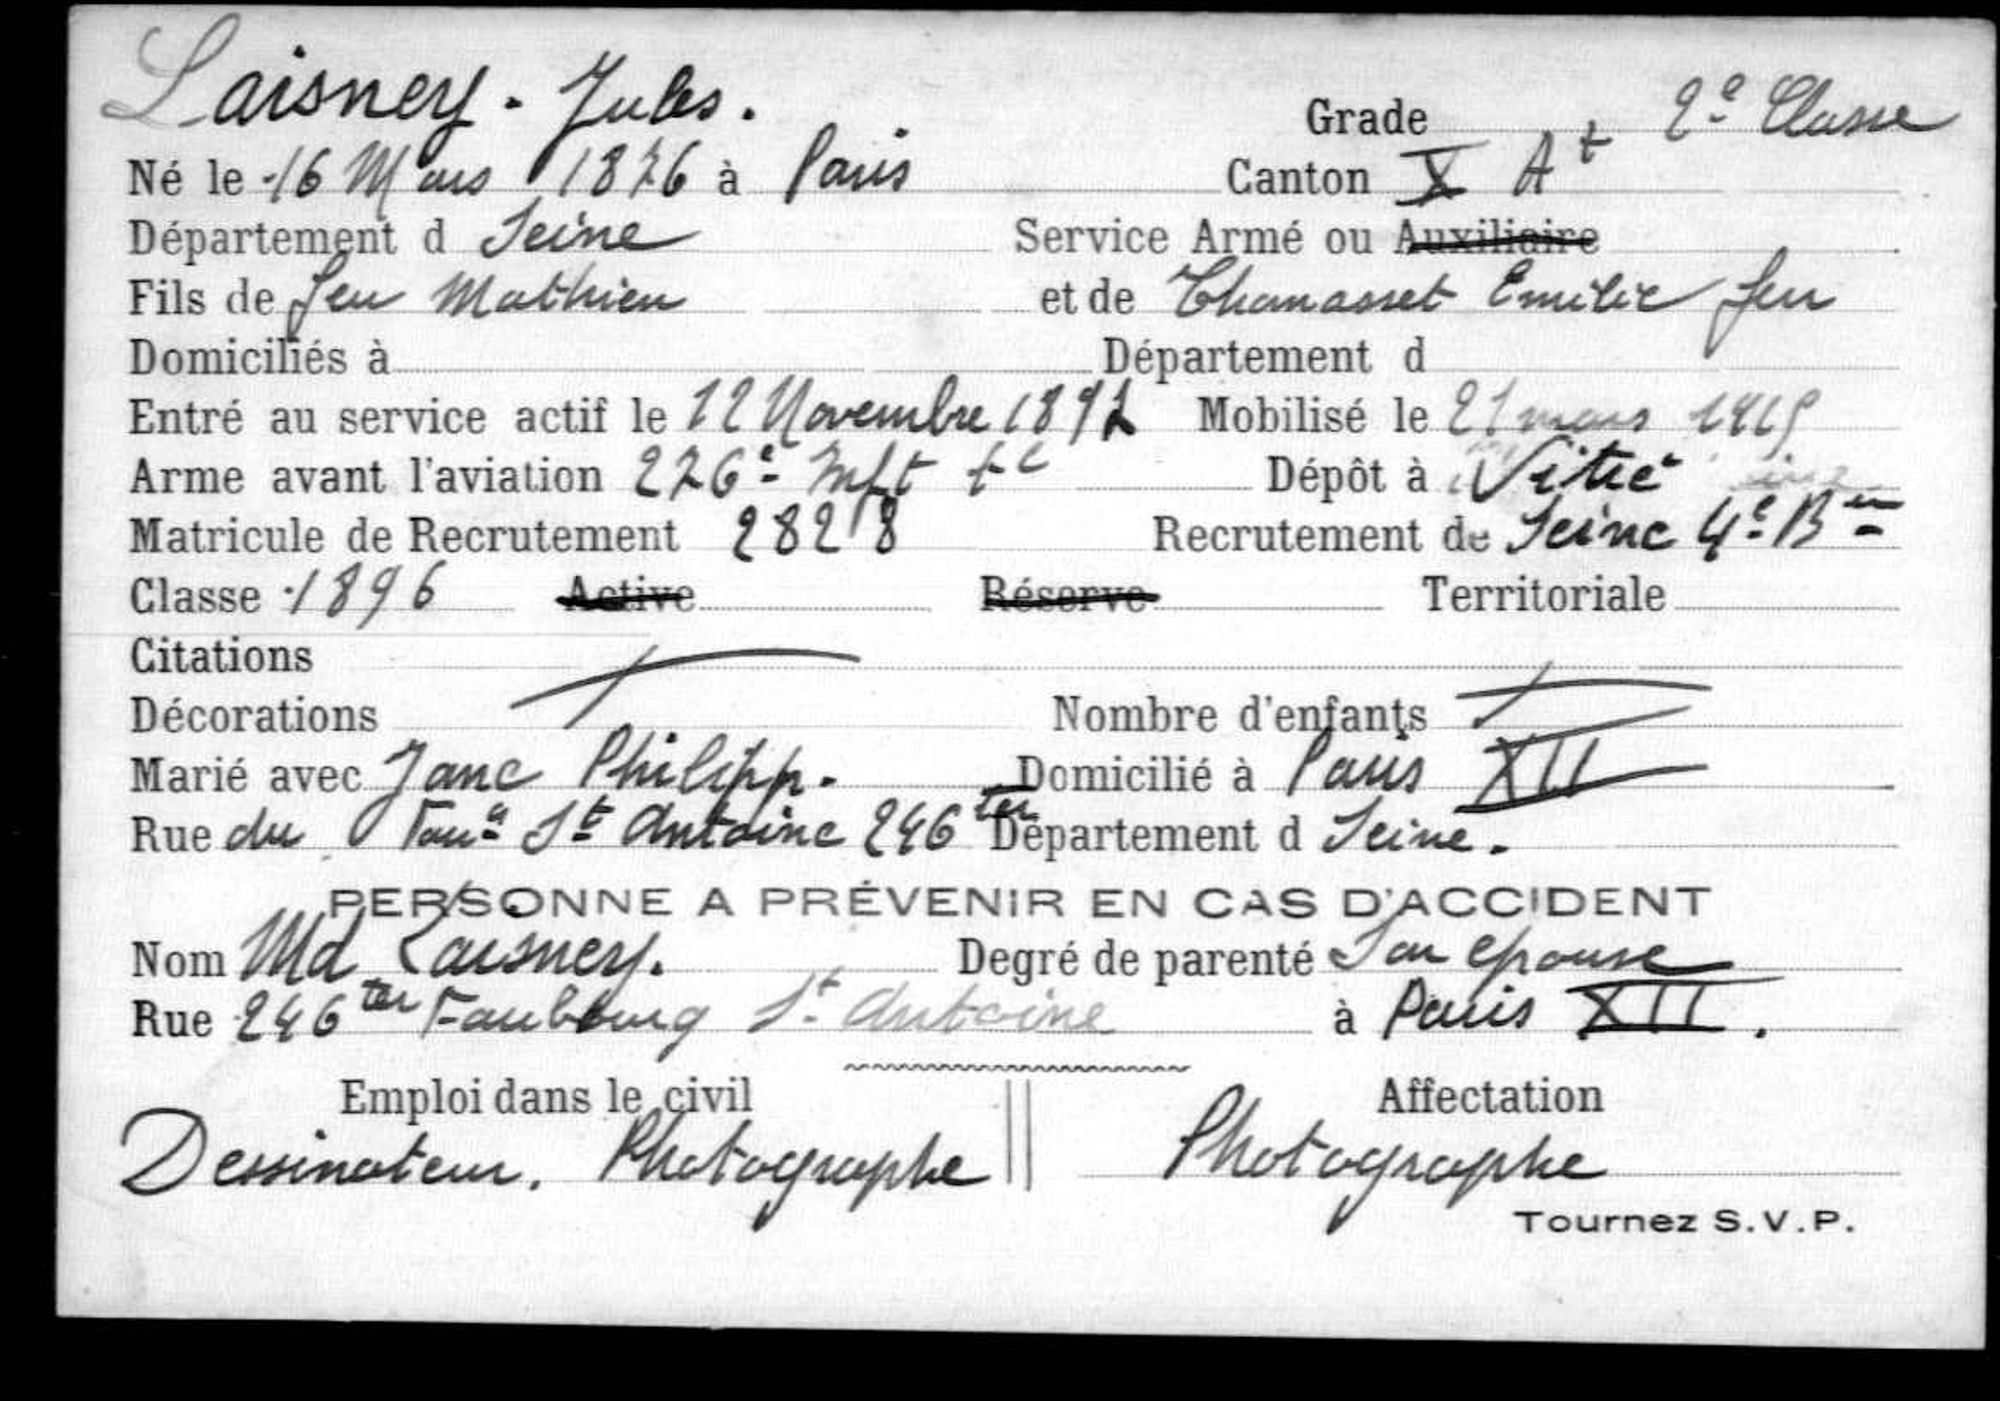 Laisney - Jules. Grade 2e Classe
Né le 16 Mars 1876 à Paris Canton X At
Département d Seine Service Armé ou Auxiliaire
Fils de feu Mathieu et de Chanasset Emilie feu
Domiciliés à Département d
Entré au service actif le 12 Novembre 1897 Mobilisé le 21 mars 1915
Arme avant l'aviation 276e Inft tc Dépôt à Vitré
Matricule de Recrutement 2828 Recrutement de Seine 4e Bau
Classe 1896 Active Réserve Territoriale
Citations
Décorations Nombre d'enfants
Marié avec Jane Philipp. Domicilié à Paris XII
Rue du Faug St Antoine 246 ter Département d Seine.
PERSONNE A PRÉVENIR EN CAS D'ACCIDENT
Nom Md Laisney. Degré de parenté Son epouse
Rue 246 ter Faubourg St Antoine à Paris XII.
Emploi dans le civil Affectation
Dessinateur. Photographe Photographe
Tournez S.V.P.